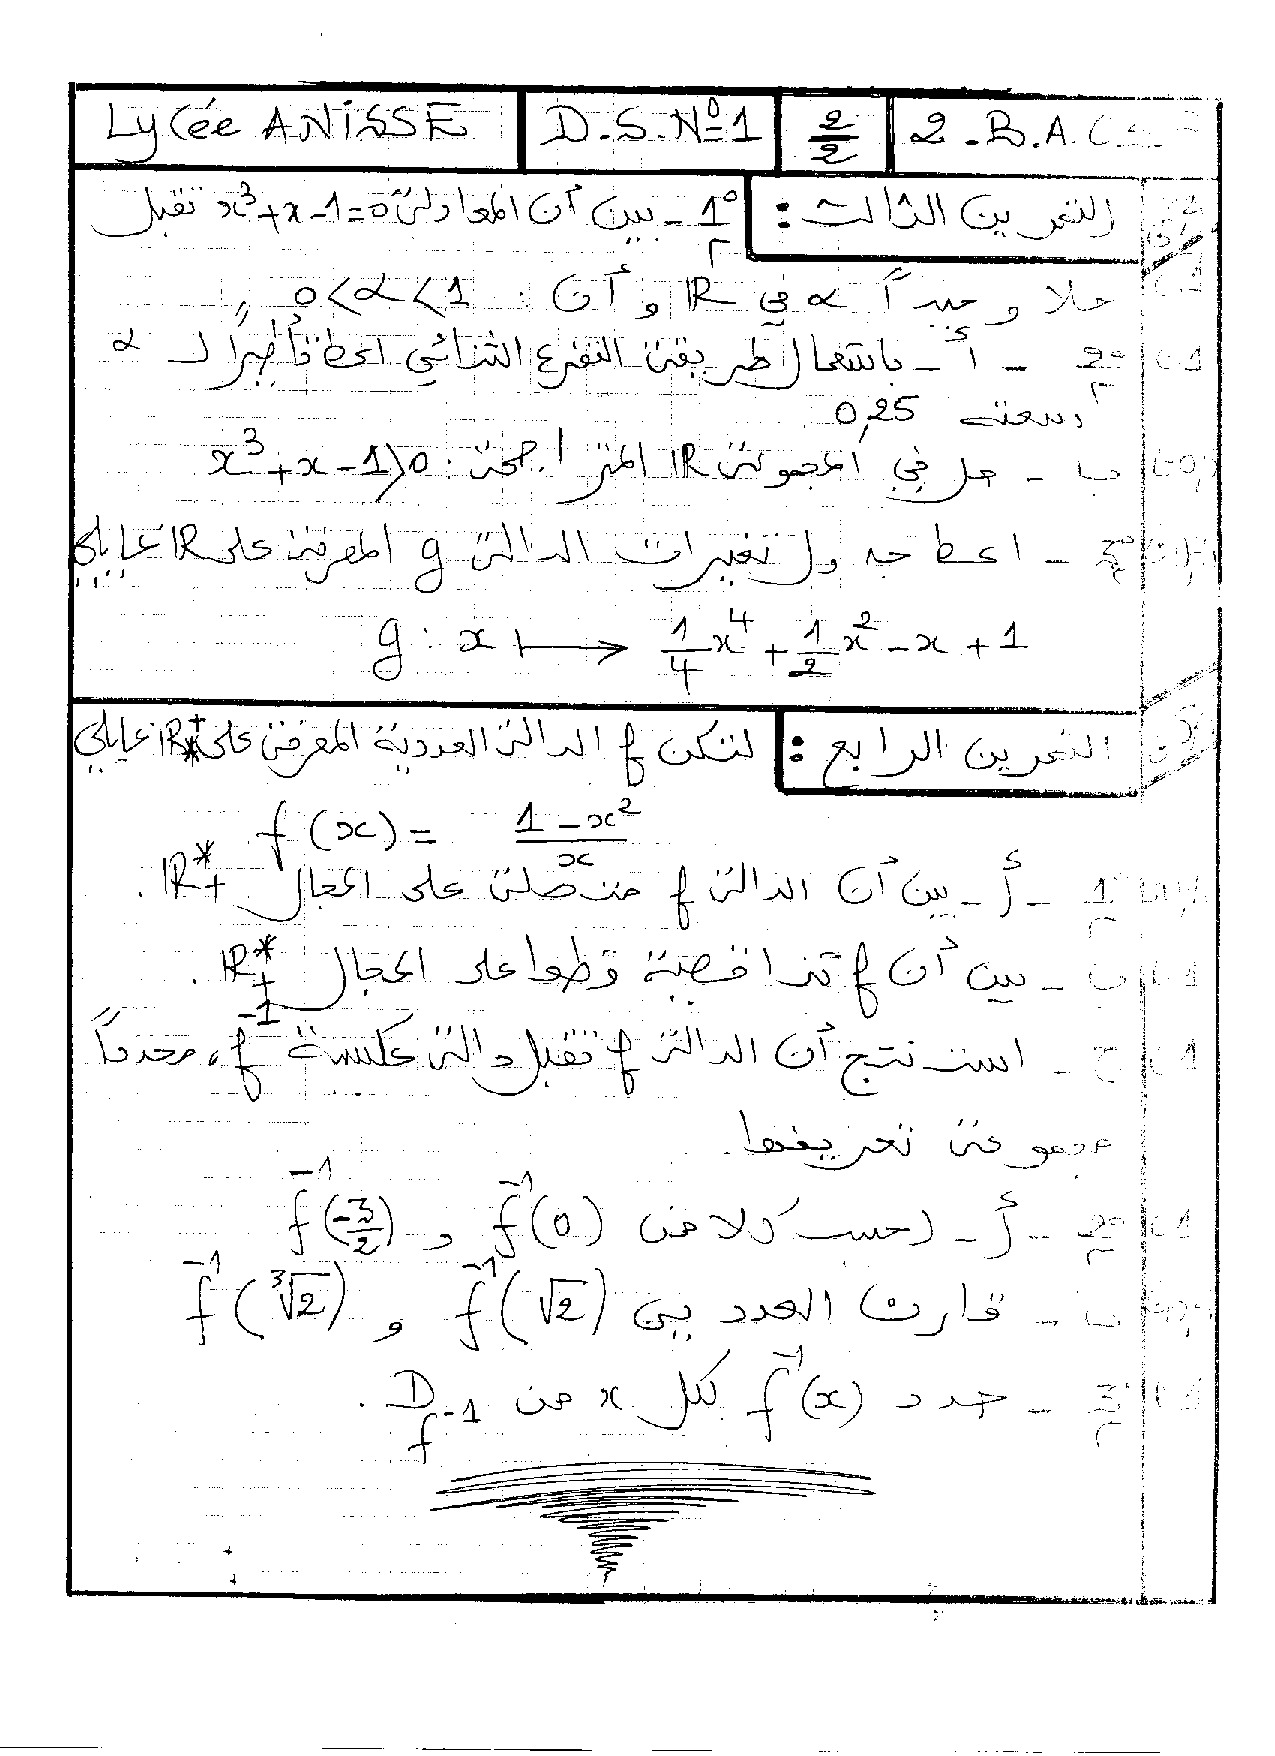 Lycée ANISSE D.S.N°1 2/2 2.B.A.C
التمرين الثالث : 1° - بين أن المعادلة x³+x-1=0 تقبل
حلا وحيداً α في ℝ و أن : 0<α<1
2° - أ - باستعمال طريقة التفرع الثنائي اعط تأطيراً لـ α
سعته 0,25
ب - حل في المجموعة ℝ المتراجحة : x³+x-1>0
3° - اعط جدول تغيرات الدالة g المعرفة على ℝ بمايلي
g : x ⟼ 1/4 x⁴ + 1/2 x² - x + 1
التمرين الرابع : لتكن f الدالة العددية المعرفة على ℝ*+ بمايلي
f(x) = (1-x²)/x
1° - أ - بين أن الدالة f متصلة على المجال ℝ*+ .
ب - بين أن f تناقصية قطعا على المجال ℝ*+ .
ج - استنتج أن الدالة f تقبل دالة عكسية f⁻¹ ، محدداً
مجموعة تعريفها .
2° - أ - احسب كلا من f⁻¹(0) و f⁻¹(-3/2)
ب - قارن العددين f⁻¹(√2) و f⁻¹(∛2)
3° - حدد f⁻¹(x) لكل x من D f⁻¹ .